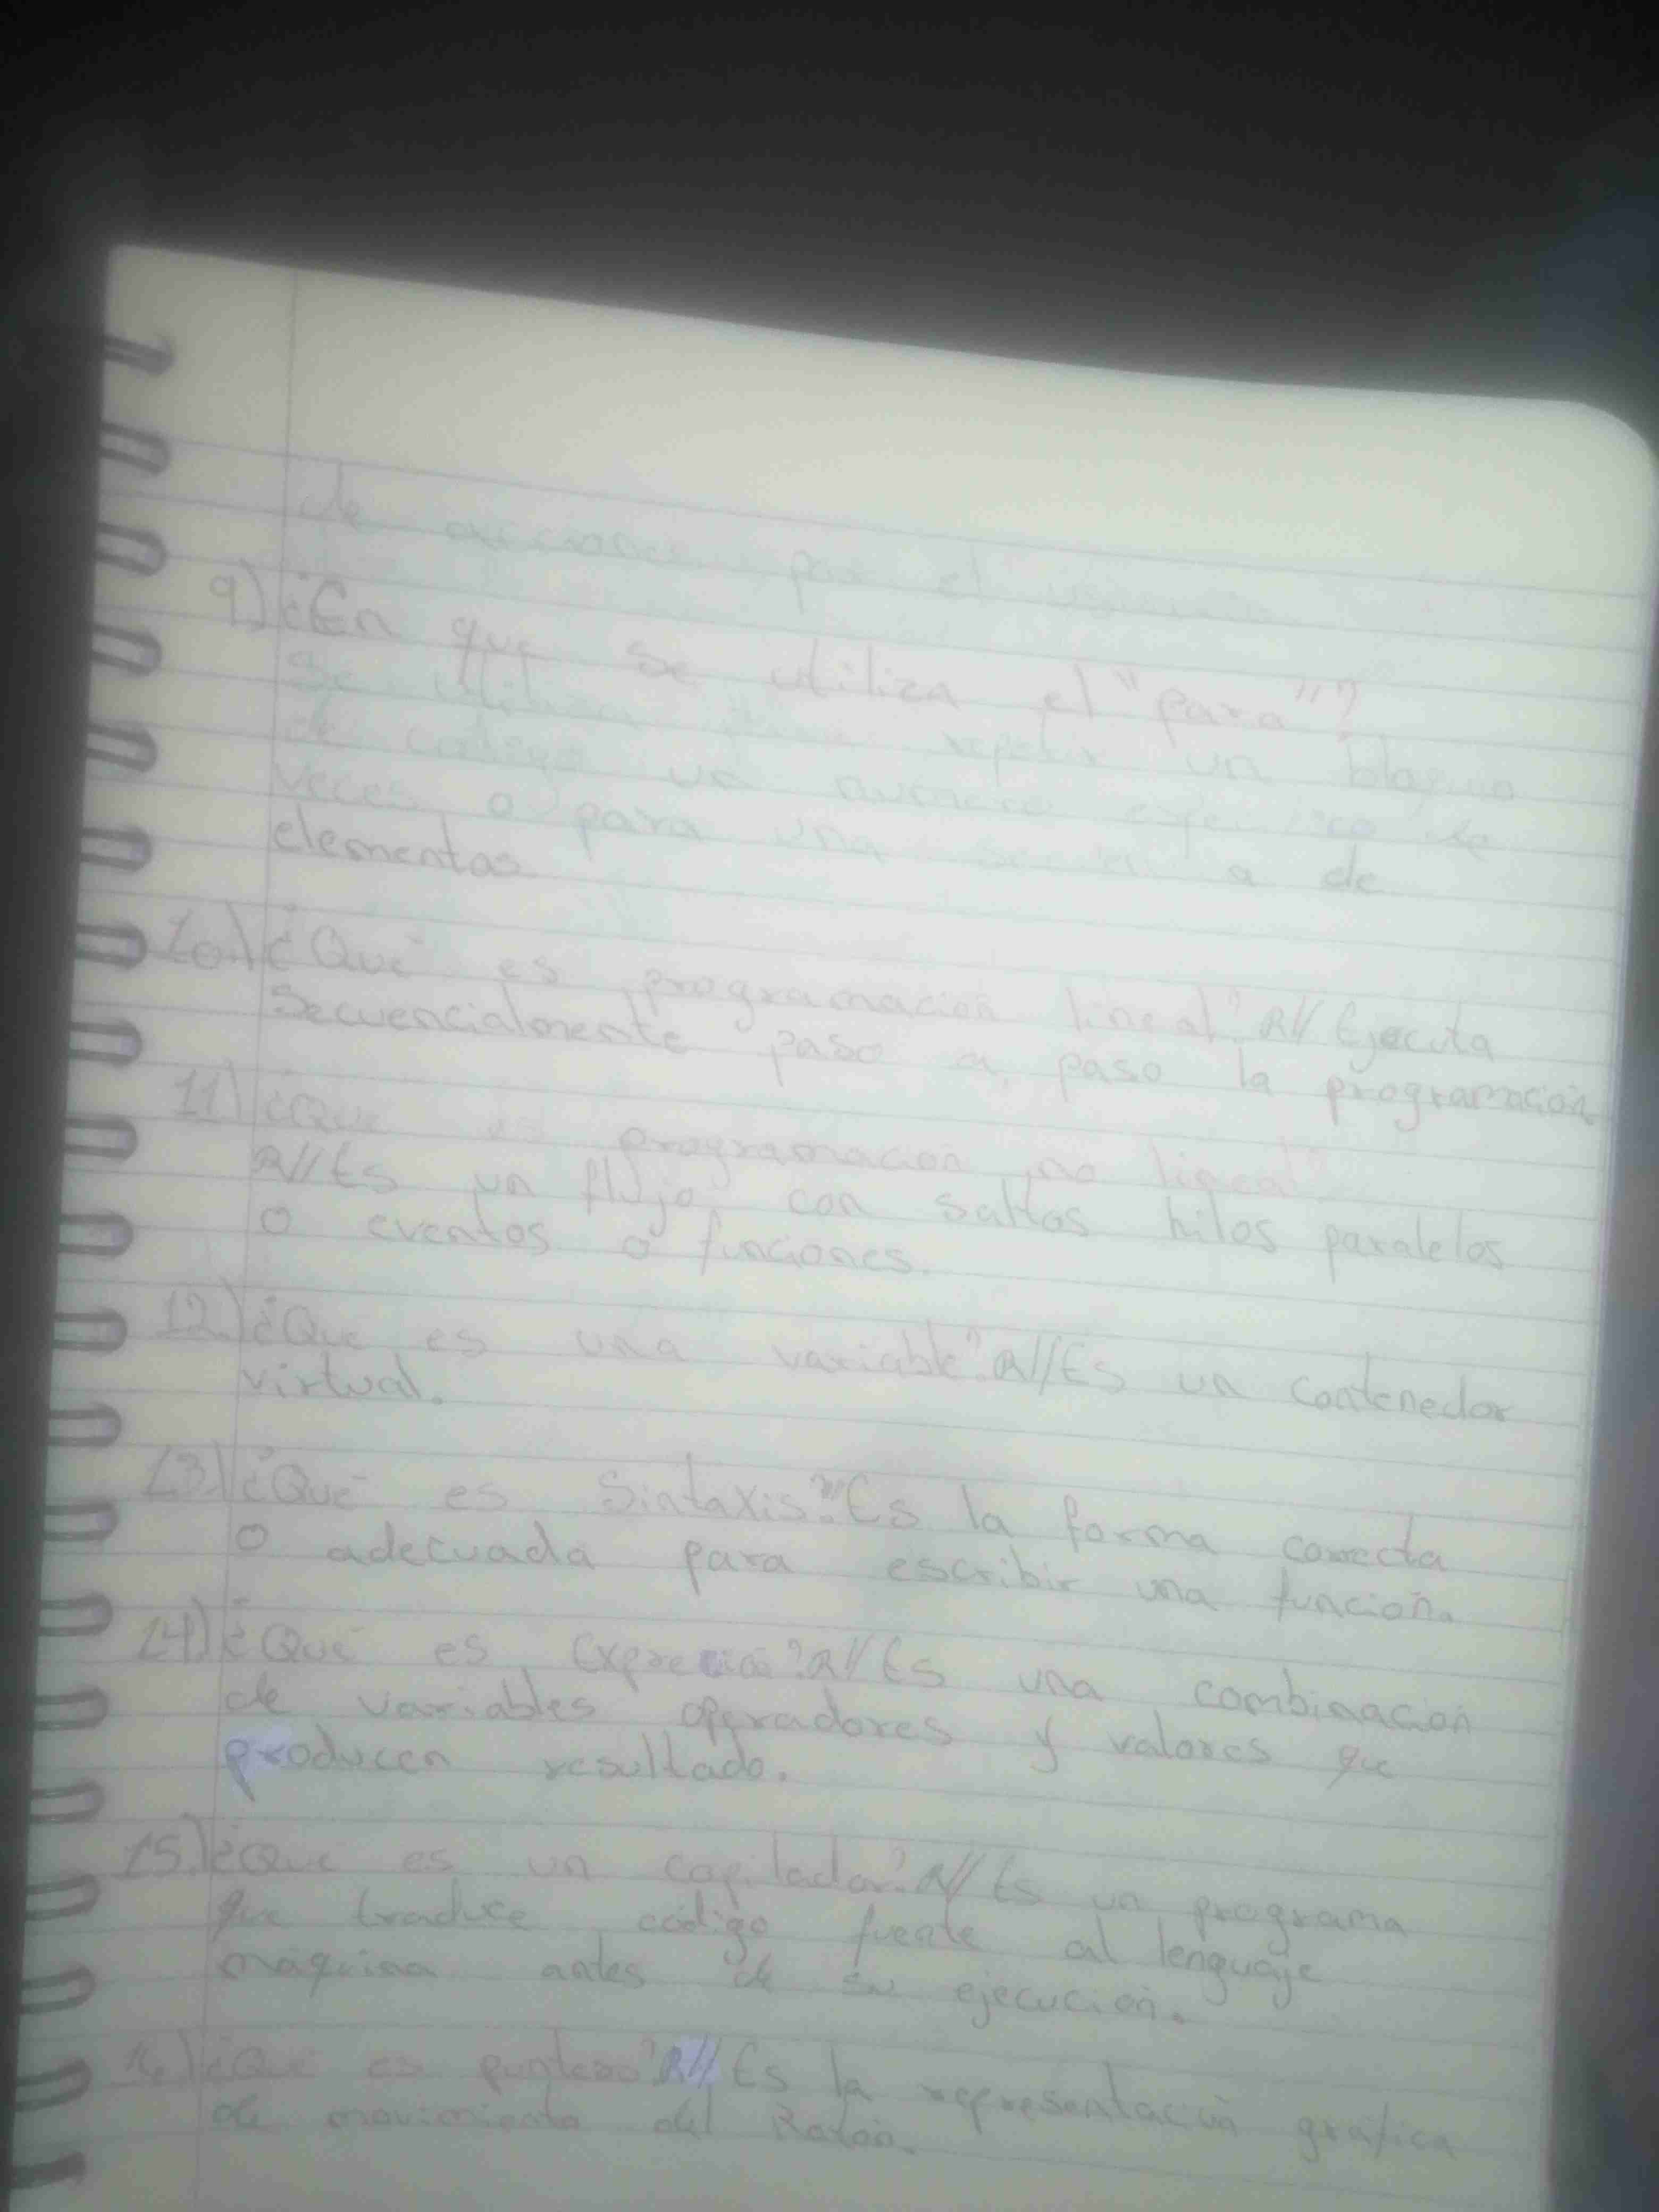 de acciones por el usuario
9) ¿En que se utiliza el "para"?
Se utiliza para repetir un bloque
de codigo un numero especifico de
veces o para una de
elementos
10) ¿Qué es programación lineal? R// Ejecuta
Secuencialmente paso a paso la programación
11) ¿Que es programacion no lineal?
R// Es un flujo con saltos hilos paralelos
o eventos o funciones.
12.) ¿Que es una variable? R// Es un contenedor
virtual.
13.) ¿Qué es Sintaxis? R// Es la forma correcta
o adecuada para escribir una función.
14.) ¿Qué es R// Es una combinación
de variables operadores y valores que
producen resultado.
15.) ¿Que es un copilador? R// Es un programa
que traduce código fuente al lenguaje
máquina antes de su ejecución.
16.) ¿Qué es puntero? R// Es la representación gráfica
de movimiento del Ratón.